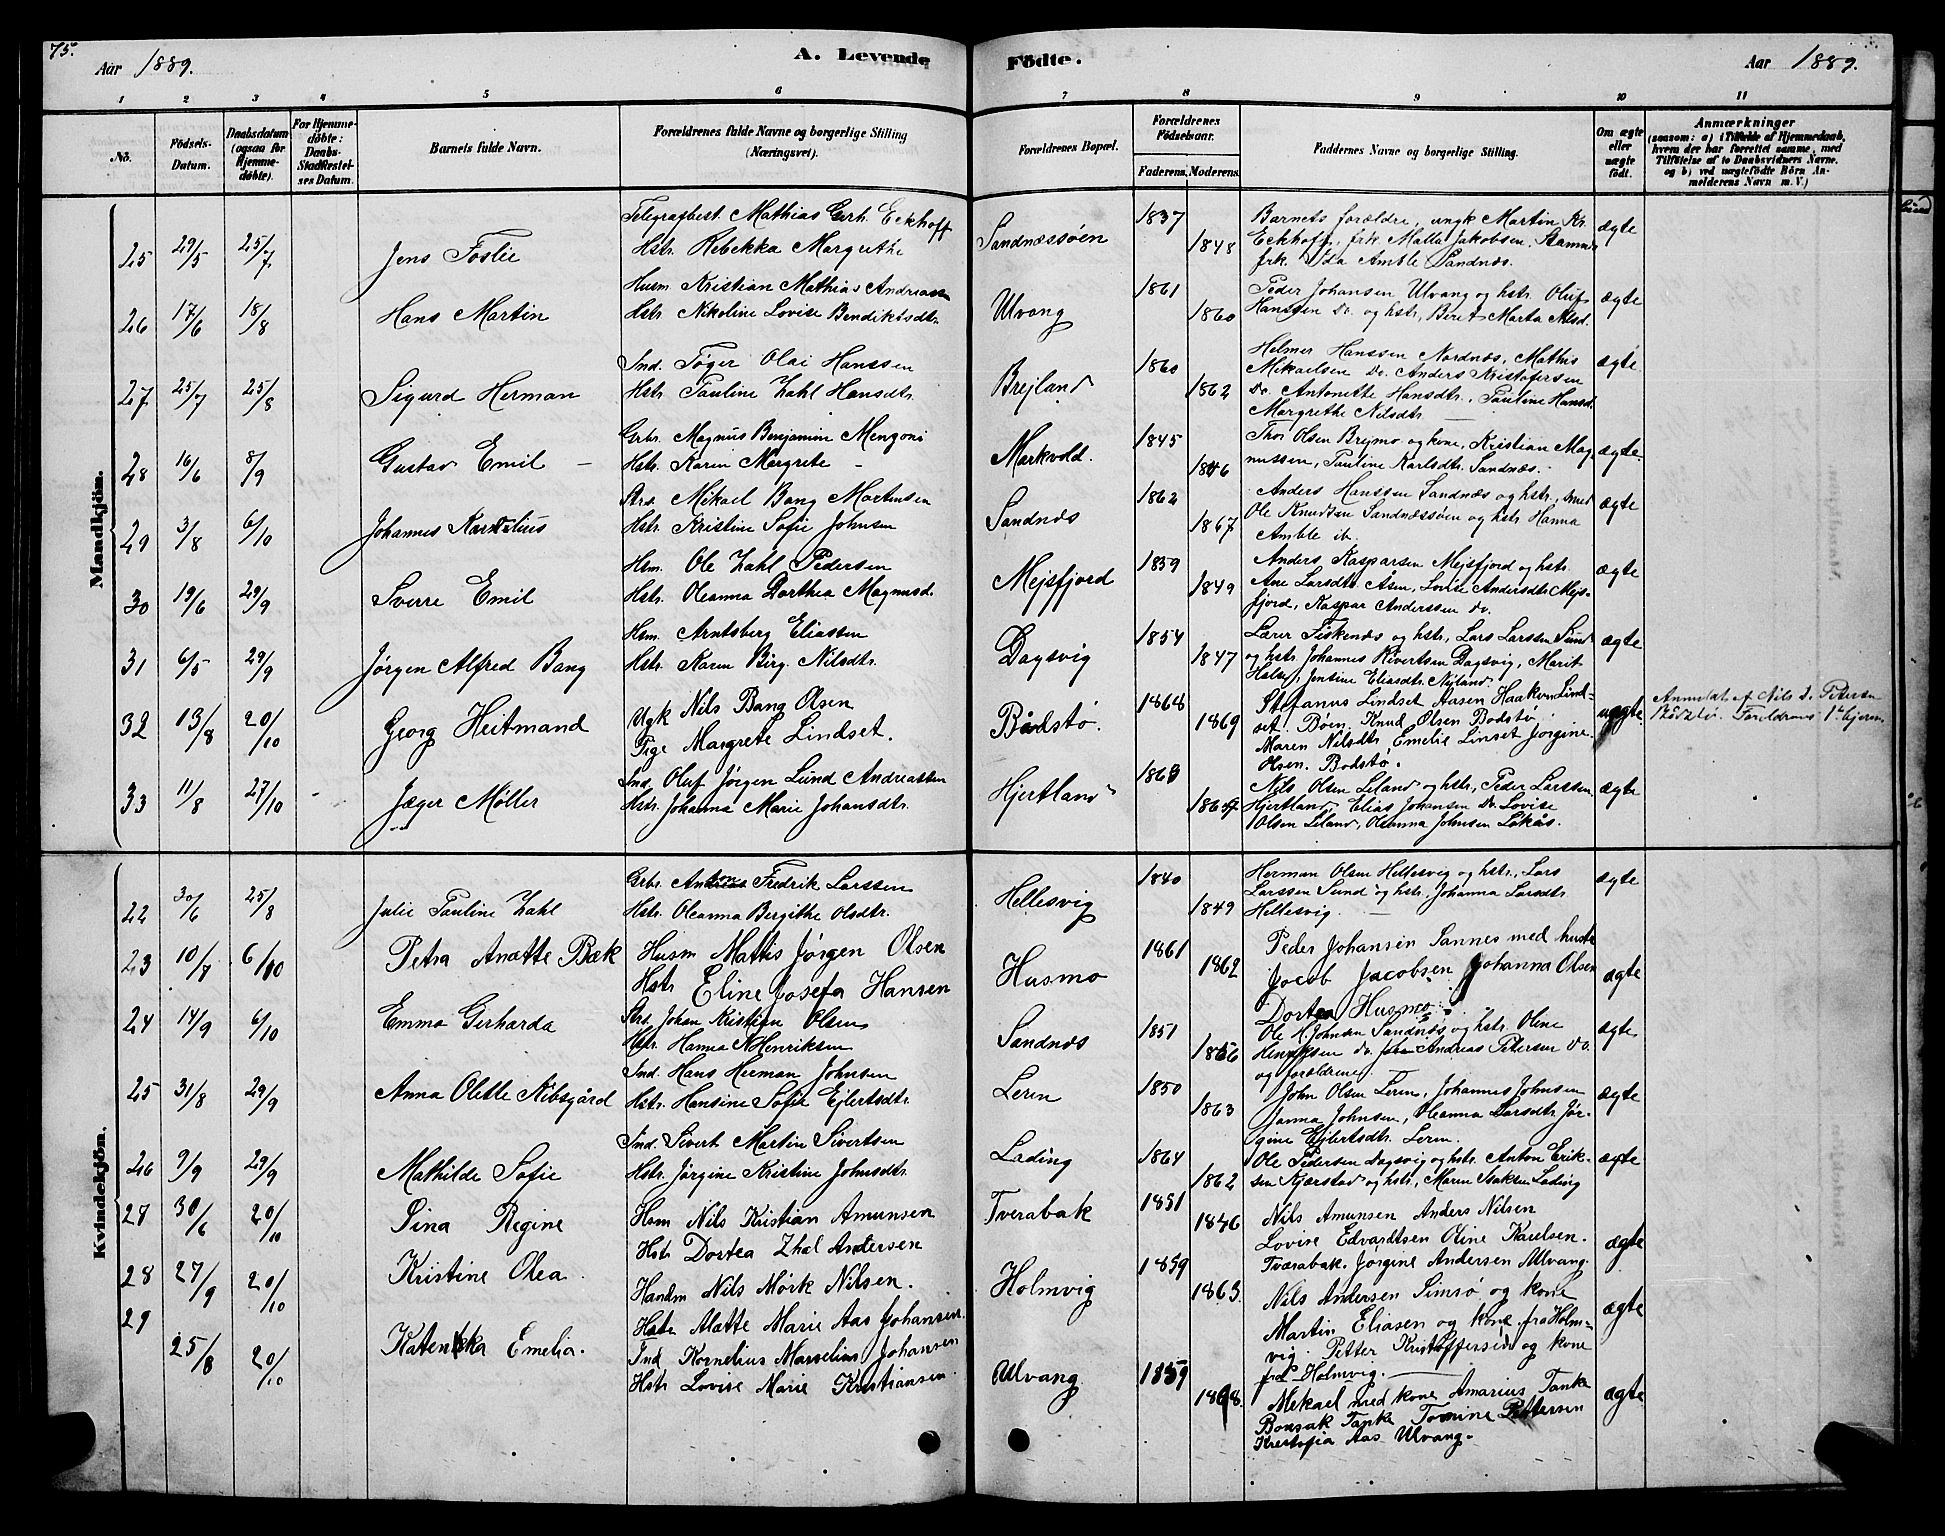 75.
Aar 1889.
A. Levende
Födte.
Aar 1889.
1 2 3 4 5 6 7 8 9 10 11
No.
Födsels-
Datum.
Daabsdatum
(ogsaa for
Hjemme-
døbte).
For Hjemme-
døbte:
Daabs-
Stadfæstel-
ses Datum.
Barnets fulde Navn.
Forældrenes fulde Navne og borgerlige Stilling
(Næringsvei).
Forældrenes Bopæl.
Forældrenes
Fødselsaar.
Faderens. Moderens.
Faddernes Navne og borgerlige Stilling.
Om ægte
eller
uægte
født.
Anmærkninger
(saasom: a) i Tilfælde af Hjemmedaab,
hvem der har forrettet samme, med
Tilføielse af to Daabsvidners Navne.
og b) ved uægtefødte Börn An-
melderens Navn m. V.)
Mandkjön.
25 29/5 25/7 Jens Foslie
Telegrafbest. Mathias Gerh. Eckhoff
Hstr. Rebekka Margrethe
Sandnæssøen 1837 1848
Barnets forældre, ungk Martin Kr.
Eckhoff, frk. Matta Jakobsen,
frk. Ida Amble Sandnæs.
ægte
26 17/6 18/8 Hans Martin
Husm Kristian Mathias Andreassen
Hstr. Nikoline Lovise Bendiktsdtr.
Ulvang 1861 1860
Peder Johansen Ulvang og hstr. Oluf
Hanssen Do. og hstr, Beret Marta Nilsd.
ægte
27 25/7 25/8 Sigurd Herman
Ind. Tøger Olai Hanssen
Hstr. Pauline Zahl Hansdtr.
Brejland 1860 1862
Helmer Hanssen Nordnæs, Mathis
Mikaelsen Do. Anders Kristofersen
Do. Antonette Hansdtr., Pauline Hansd.
Margrethe Nilsdtr.
ægte
28 16/6 8/9 Gustav Emil –
Grbr. Magnus Benjamin Mengoni
Hstr. Karen Margrete –
Markvold. 1845 1846
Thor Olsen Brejmo og kone, Kristian Mag-
nussen, Pauline Karlsdtr. Sandnæs.
ægte
29 3/8 6/10 Johannes Karnelius
Strs. Mikael Bang Mortensen
Hstr. Kristine Sofie Johnsen
Sandnæs 1862 1867
Anders Hanssen Sandnæs og hstr., smed
Ole Knudsen Sandnæssøen og hstr. Hanna
Amble ib.
ægte
30 19/6 29/9 Sverre Emil
Hsm. Ole Zahl Pedersen
Hstr. Oleanna Dorthea Magnusd.
Mejsfjord 1859 1849
Anders Kasparsen Mejsfjord og hstr.
Ane Larsdtr. Åsen, Lovise Andersdtr. Mejs-
fjord, Kaspar Anderssen do.
ægte
31 6/5 29/9 Jørgen Alfred Bang
Hsm. Arntsberg Eliassen
Hstr. Karen Birg. Nilsdtr.
Dagsvig 1854 1847
Lærer Fiskenæs og hstr, Lars Larssen Sund
og hstr. Johannes Sivertsen Dagsvig, Marit
Jensine Eliasdtr. Nyland
ægte
32 13/8 20/10 Georg Heitmand
Ugk Nils Bang Olsen
Pige Margrete Lindset.
Bodstø. 1868 1869
Stefanus Lindset Aasen Haakon Lind-
set. Bøen, Knud Olsen Bodstø,
Maren Nilsdtr Emelie Linset Jørgine
Olsen. Bodstø.
uægte
Anmeldt af Nils D. Petersen
Bodstø. Foreldrenes 1te hjem
33 11/8 27/10 Jæger Møller
Ind. Oluf Jørgen Lund Andreassen
Hstr. Johanna Marie Johansdtr.
Hjertland 1863
Nils Olsen Leland og hstr., Peder Larssen
Hjertland, Elias Johansen Do. Lovise
Olsen Leland, Oleanna Johnsen Løkås.
ægte
Kvindekjön.
22 30/6 25/8 Julie Pauline Zahl
Grbr. Anton Fredrik Larssen
Hstr. Oleanna Bergithe Olsdtr.
Hellesvig 1840 1849
Herman Olsen Hellesvig og hstr., Lars
Larssen Sund og hstr. Johanna Larsdtr.
Hellesvig.
ægte
23 10/7 6/10 Petra Anætte Bæk
Husm Mattis Jørgen Olsen
Hstr Eline Josefa Hansen
Husmo 1861 1862
Peder Johansen Sannes med hustr
Jocob Jacobsen Johanna Olsen
Dortea Husmo
ægte
24 14/9 6/10 Emma Gerharda
Strs. Johan Kristian Olsen
Hstr. Hanna N Henriksen
Sandnæs 1851 1856
Ole K Johnsen Sandnæs og hstr. Oline
Henriksen do. Andreas Petersen do.
og forældrene
ægte
25 31/8 29/9 Anna Olette Nibsgård
Ind. Hans Herman Johnsen
Hstr. Hansine Sofie Ejlertsdtr.
Leren 1850 1863
John Olsen Leren, Johannes Johnsen
Janna Johnsen, Oleanna Larsdtr. Jør-
gine Ejlertsdtr. Leren.
ægte
26 9/9 29/9 Mathilde Sofie
Ind. Sivert Martin Sivertsen
Hstr. Jørgine Kristine Johnsdtr.
Lading 1864 1862
Ole Pedersen Dagsvig og hstr. Anton Erik-
sen Kjærstad og hstr., Maren Isaksen Lading
ægte
27 30/6 20/10 Sina Regine
Hsm Nils Kristian Amunsen
Hstr Dortea Zhal Andersen
Tverabak 1851 1846
Nils Amunsen Anders Nilsen
Lovise Edvardtsen Oline Karelsen.
Tværabak. Jørgine Andersen Ulvang.
ægte
28 27/9 20/10 Kristine Olea.
Handm Nils Mørk Nilsen.
Hstr Alette Marie Aas Johansen.
Holmvig 1859 1863.
Nils Andersen Simsø, og kone
Martin Eliasen og kone fra Holm-
vig. Petter Kristoffersen og kone
fra Holmvig.
ægte
29 25/8 20/10 Katenkka Emelia.
Ind Kornelius Marselius Johansen
Hstr Lovise Marie Kristiansen.
Ulvang 1859
Mekael med kone Amarius Tanke
Bonsak Tanke Tomine Pettersen
Krestofia Aas Ulvang.
ægte